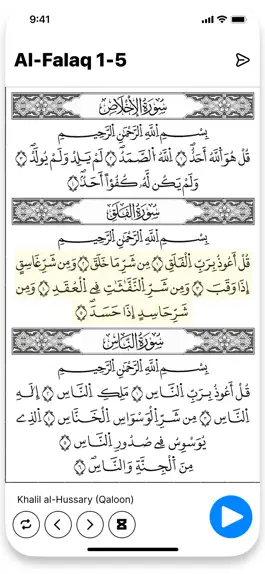 9:41
Al-Falaq 1-5
سُورَةُ الإِخْلَاصِ
بِسْمِ اِللَّهِ اِلرَّحْمَٰنِ اِلرَّحِيمِ
قُلْ هُوَ اَللَّهُ أَحَدٌۖ ١ اَللَّهُ اُلصَّمَدُۖ ٢ لَمْ يَلِدْ وَلَمْ يُولَدْۖ ٣
وَلَمْ يَكُن لَّهُۥ كُفُؤاً اَحَدٌۖ ٤
سُورَةُ الْفَلَقِ
بِسْمِ اِللَّهِ اِلرَّحْمَٰنِ اِلرَّحِيمِ
قُلْ أَعُوذُ بِرَبِّ اِلْفَلَقِ ١ مِن شَرِّ مَا خَلَقَ ٢ وَمِن شَرِّ غَاسِقٍ
إِذَا وَقَبَ ٣ وَمِن شَرِّ اِلنَّفَّٰثَٰتِ فِے اِلْعُقَدِ ٤ وَمِن
شَرِّ حَاسِدٍ إِذَا حَسَدَۖ ٥
سُورَةُ النَّاسِ
بِسْمِ اِللَّهِ اِلرَّحْمَٰنِ اِلرَّحِيمِ
قُلْ أَعُوذُ بِرَبِّ اِلنَّاسِ ١ مَلِكِ اِلنَّاسِ ٢ إِلَٰهِ
اِلنَّاسِ ٣ مِن شَرِّ اِلْوَسْوَاسِ اِلْخَنَّاسِ ٤ اِلذِے
يُوَسْوِسُ فِے صُدُورِ اِلنَّاسِ ٥
مِنَ اَلْجِنَّةِ وَالنَّاسِۖ ٦
Khalil al-Hussary (Qaloon)